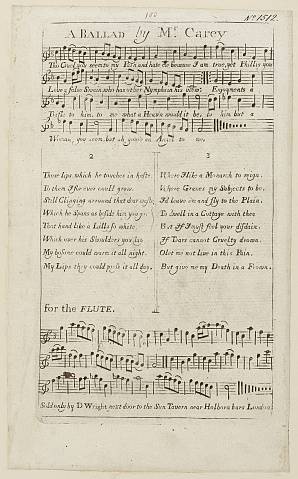 No. 1512.
A BALLAD by Mr. Carey
Tho' Cruel you seem to my Pain and hate me because I am true, yet Phillis you
Love a false Swain, who has other Nymphs in his view: Enjoyment's a
Trifle to him, to me what a Heaven would it be, to him but a
Woman you seem, but ah you're an Angel to me.
2
Those Lips which he touches in haste,
To them I for ever could grow,
Still Clinging around that dear waste,
Which he Spans as beside him you go;
That hand like a Lilly so white,
Which over his Shoulders you lay,
My bosome could warm it all night,
My Lips they could press it all day.
3
Were I like a Monarch to reign,
Where Graces my Subjects to be,
I'd leave 'em and fly to the Plain,
To dwell in a Cottage with thee
But if I must feel your disdain,
If Tears cannot Cruelty drown,
O let me not live in this Pain,
But give me my Death in a Frown.
for the FLUTE.
Sold only by D Wright next door to the Sun Tavern near Holborn bars London